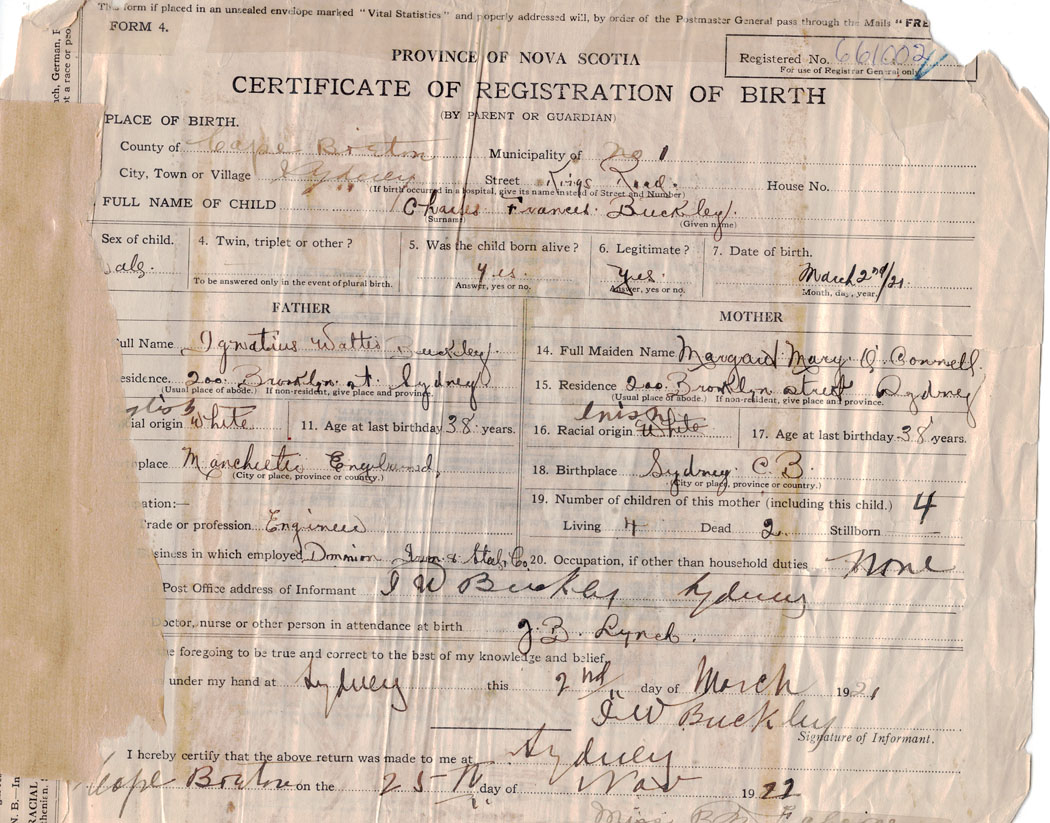 This form if placed in an unsealed envelope marked "Vital Statistics" and properly addressed will, by order of the Postmaster General pass through the Mails "FRE
FORM 4.
PROVINCE OF NOVA SCOTIA
Registered No. 661002
For use of Registrar General only
CERTIFICATE OF REGISTRATION OF BIRTH
(BY PARENT OR GUARDIAN)
PLACE OF BIRTH.
County of Cape Breton Municipality of No 1
City, Town or Village Sydney Street Kings Road. House No.
(If birth occurred in a hospital, give its name instead of Street and Number)
FULL NAME OF CHILD Charles Francis Buckley
(Surname) (Given name)
Sex of child. 4. Twin, triplet or other? 5. Was the child born alive? 6. Legitimate? 7. Date of birth.
ale. yes. yes. March 2nd/21
To be answered only in the event of plural birth. Answer, yes or no. Answer, yes or no. Month, day, year.
FATHER MOTHER
ull Name Ignatius Walter Buckley 14. Full Maiden Name Margaret Mary O'Connell
esidence 200 Brooklyn st. Sydney 15. Residence 200 Brooklyn street Sydney
(Usual place of abode.) If non-resident, give place and province. (Usual place of abode.) If non-resident, give place and province.
glish Irish
ial origin White 11. Age at last birthday 38 years. 16. Racial origin White 17. Age at last birthday 38 years.
place Manchester England 18. Birthplace Sydney C.B.
(City or place, province or country.) (City or place, province or country.)
ation:— 19. Number of children of this mother (including this child.) 4
Trade or profession Engineer Living 4 Dead 2 Stillborn –
siness in which employed Dominion Iron & Steel Co. 20. Occupation, if other than household duties None
Post Office address of Informant I W Buckley Sydney
octor, nurse or other person in attendance at birth J. B. Lynch.
e foregoing to be true and correct to the best of my knowledge and belief.
under my hand at Sydney this 2nd day of March 1921
I W Buckley
Signature of Informant.
I hereby certify that the above return was made to me at Sydney
Cape Breton on the 25th day of Nov 1922
Miss B
nch, German, F
ot a race or peo
N. B. In
RACIAL